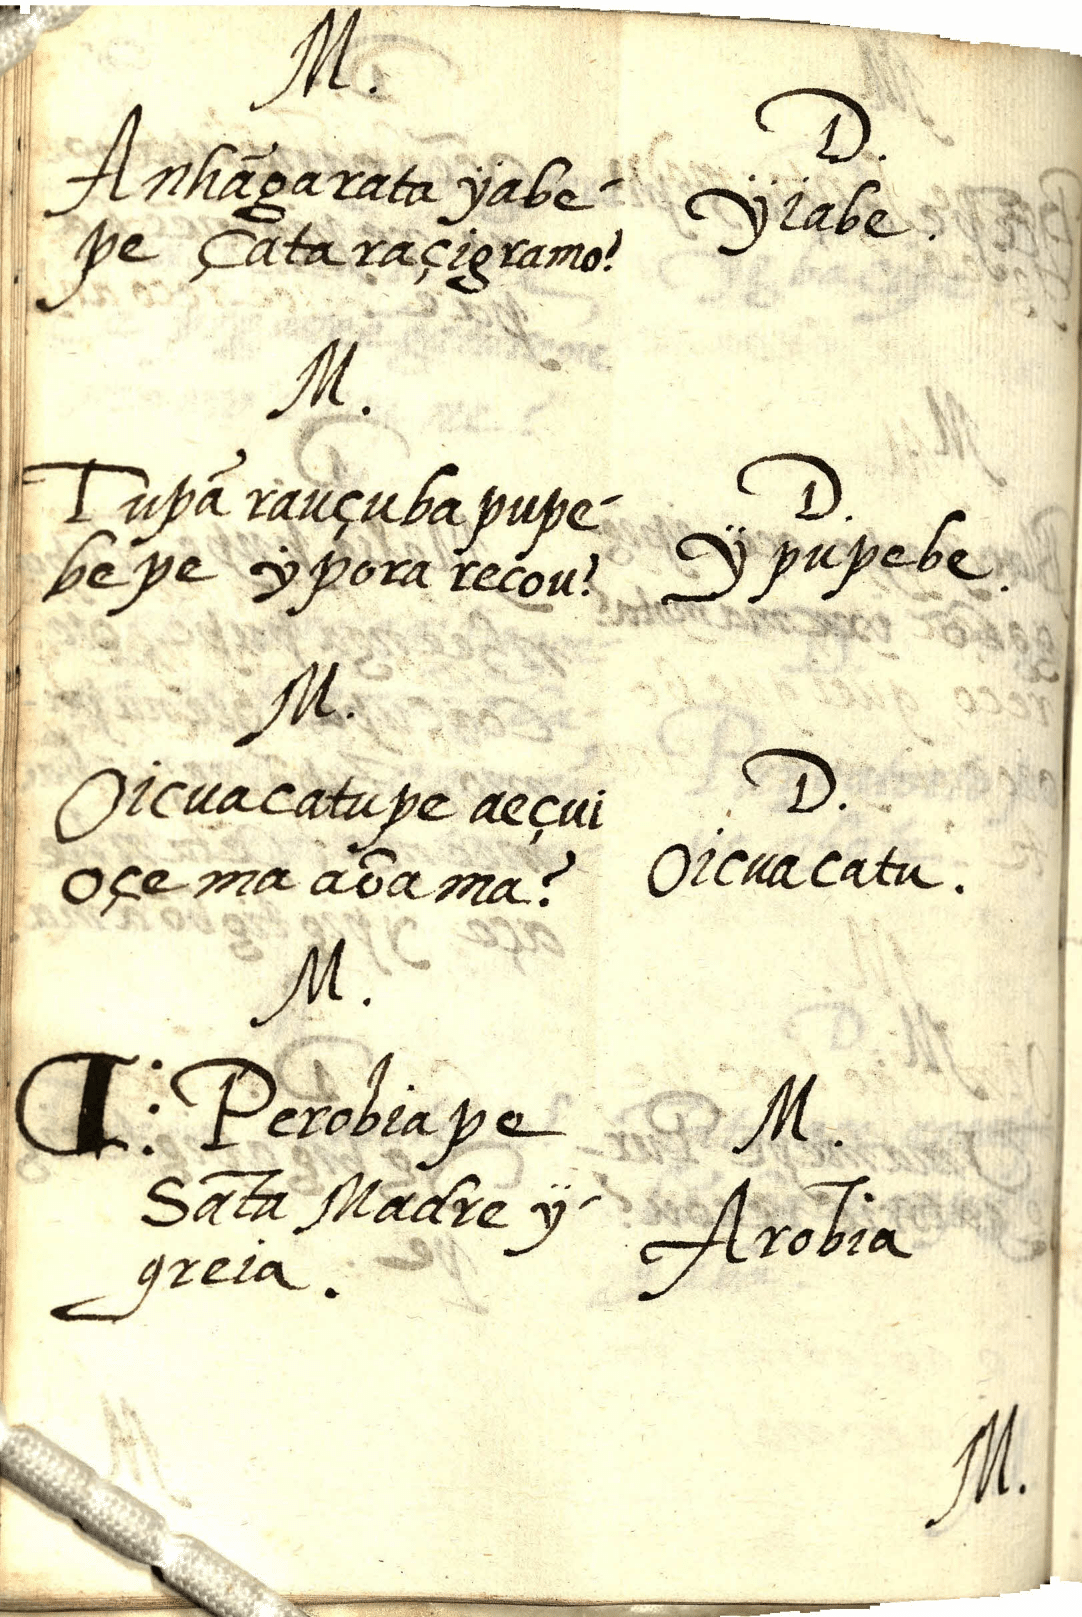 M.
Anhãgarata ÿabe-
pe çata raçigramo?
D.
ÿiabe.
M.
Tupã rauçuba pupe-
be pe ÿpora recou?
D.
ÿ pupebe.
M.
Oicuacatupe aeçui
oçe ma aõama?
D.
Oicuacatu.
M.
Perobia pe
Sãta Madre ÿ-
greia.
M.
Arobia
M.